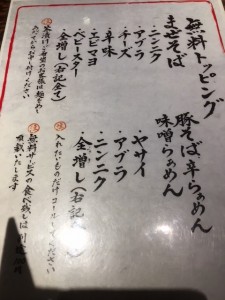 無料トッピング
まぜそば
・ニンニク
・アブラ
・チーズ
・辛味
・エビマヨ
・ベビースター
・全増し(右記全て)
豚そば、辛らぁめん
味噌らぁめん
・ヤサイ
・アブラ
・ニンニク
・全増し(右記
入れたいものだけコールしてください
無料サービスの食べ残しは
頂戴いたします